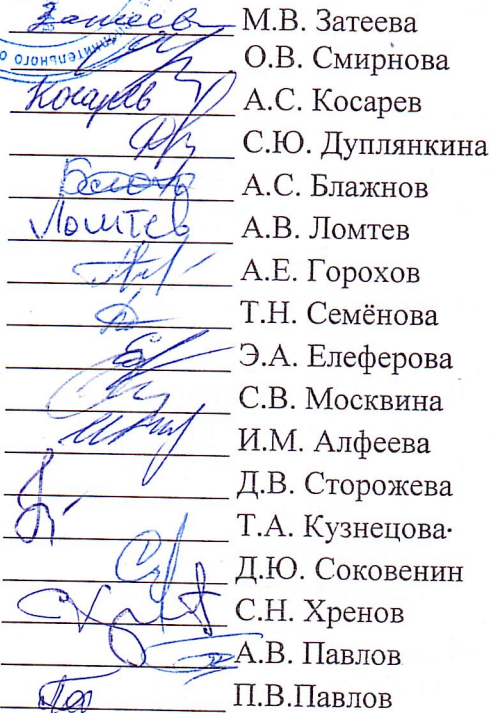 Затеев М.В. Затеева
О.В. Смирнова
Косарев А.С. Косарев
С.Ю. Дуплянкина
А.С. Блажнов
Ломтев А.В. Ломтев
А.Е. Горохов
Т.Н. Семёнова
Э.А. Елеферова
С.В. Москвина
И.М. Алфеева
Д.В. Сторожева
Т.А. Кузнецова
Д.Ю. Соковенин
С.Н. Хренов
А.В. Павлов
П.В.Павлов